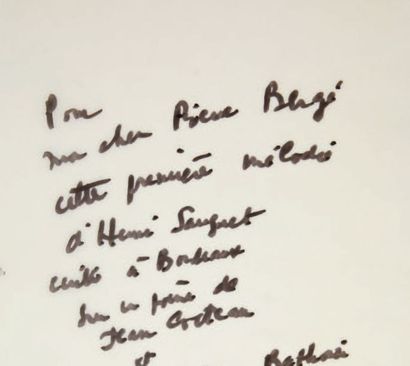 Pour
mon cher Pierre Bergé
cette première mélodie
d'Henri Sauguet
écrite à Bordeaux
sur un poème de
Jean Cocteau
et Bathori